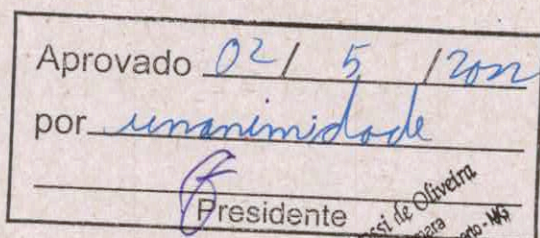 Aprovado 02 / 5 / 2022
por unanimidade
Presidente
de Oliveira